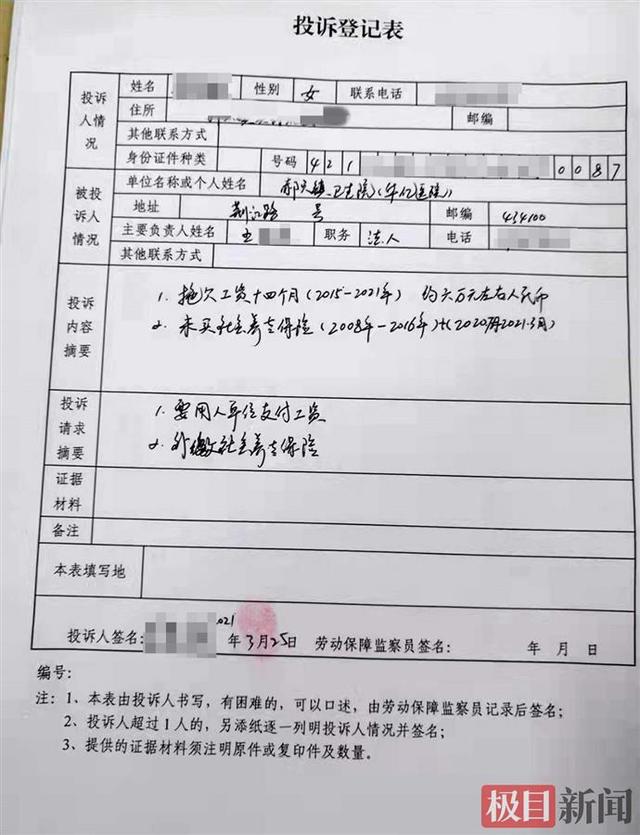 投诉登记表
投诉人情况
姓名 性别 女 联系电话
住所 邮编
其他联系方式
身份证件种类 号码 421 0087
被投诉人情况
单位名称或个人姓名 郝穴镇卫生院(华亿医院)
地址 荆江路 号 邮编 434100
主要负责人姓名 王 职务 法人 电话
其他联系方式
投诉内容摘要
1. 拖欠工资十四个月(2015-2021年) 约六万元左右人民币
2. 未买社会养老保险(2008年-2016年)+(2020 2021.3月)
投诉请求摘要
1. 要用人单位支付工资
2. 补缴社会养老保险
证据材料
备注
本表填写地
投诉人签名: 2021年3月25日 劳动保障监察员签名: 年 月 日
编号:
注:1、本表由投诉人书写,有困难的,可以口述,由劳动保障监察员记录后签名;
2、投诉人超过1人的,另添纸逐一列明投诉人情况并签名;
3、提供的证据材料须注明原件或复印件及数量。
极目新闻